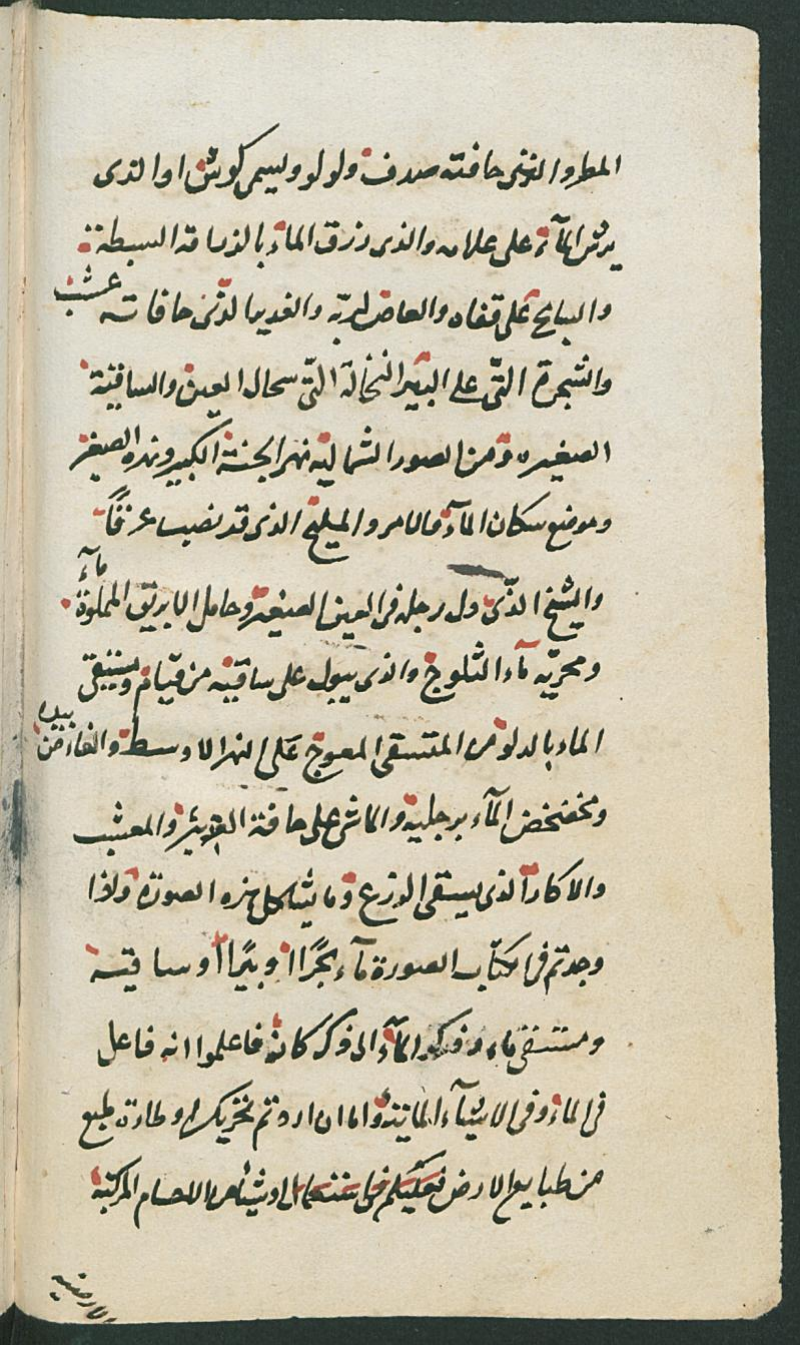 المطر والذي حافته صدف ولولو ويسمى كوش او الذى
يرش المآء على علان والذى يزرق الماء بالذراقة البسيطة
والسابح على قفاه والعاض لبربه والغدير الذى حافاته عشب
والشجرة التّى على البير النخالة التّى بحال العين والساقية
الصغيره ومن الصور الشماليه نهر الجنة الكبير ونهره الصغير
وموضع سكان المآء فالامر والمليح الذى قد نصب عرفًا
والشيخ الذّى دل رجله فى العين الصغيرة وحامل الابريق المملوة مآء
ومحريّه مآء الثلوج والذى يبول على ساقيه من قيام ويستقى
الماء بالدلو من المتسقى المعوج على النهر الاوسط والغارض بيده
ومخضخض المآء برجليه والماشى على حافة الغدير والمعشب
والاكار الذى يسقى الزرع وما يشاكل هزه الصورة واذا
وجدتم فى كتاب الصورة مآء بحرًا او بيرًا او ساقية
ومستقى ماء وذكر المآء الى ذكر كان فاعلموا انه فاعل
فى الماء وفى الاشيآء المائية واما ان اردتم تحريك او طارة طبع
من طبايع الارض فعليكم الى او شيئا من الاجسام المركبة
الارضية